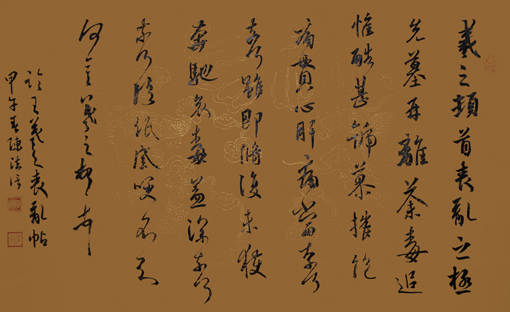 羲之頓首喪亂之極
先墓再離荼毒追
惟酷甚號慕摧絕
痛貫心肝痛當奈何
奈何雖即脩復未獲
奔馳哀毒益深奈何
奈何臨紙感哽不知
何言羲之頓首頓首
臨王羲之喪亂帖
甲午春陳